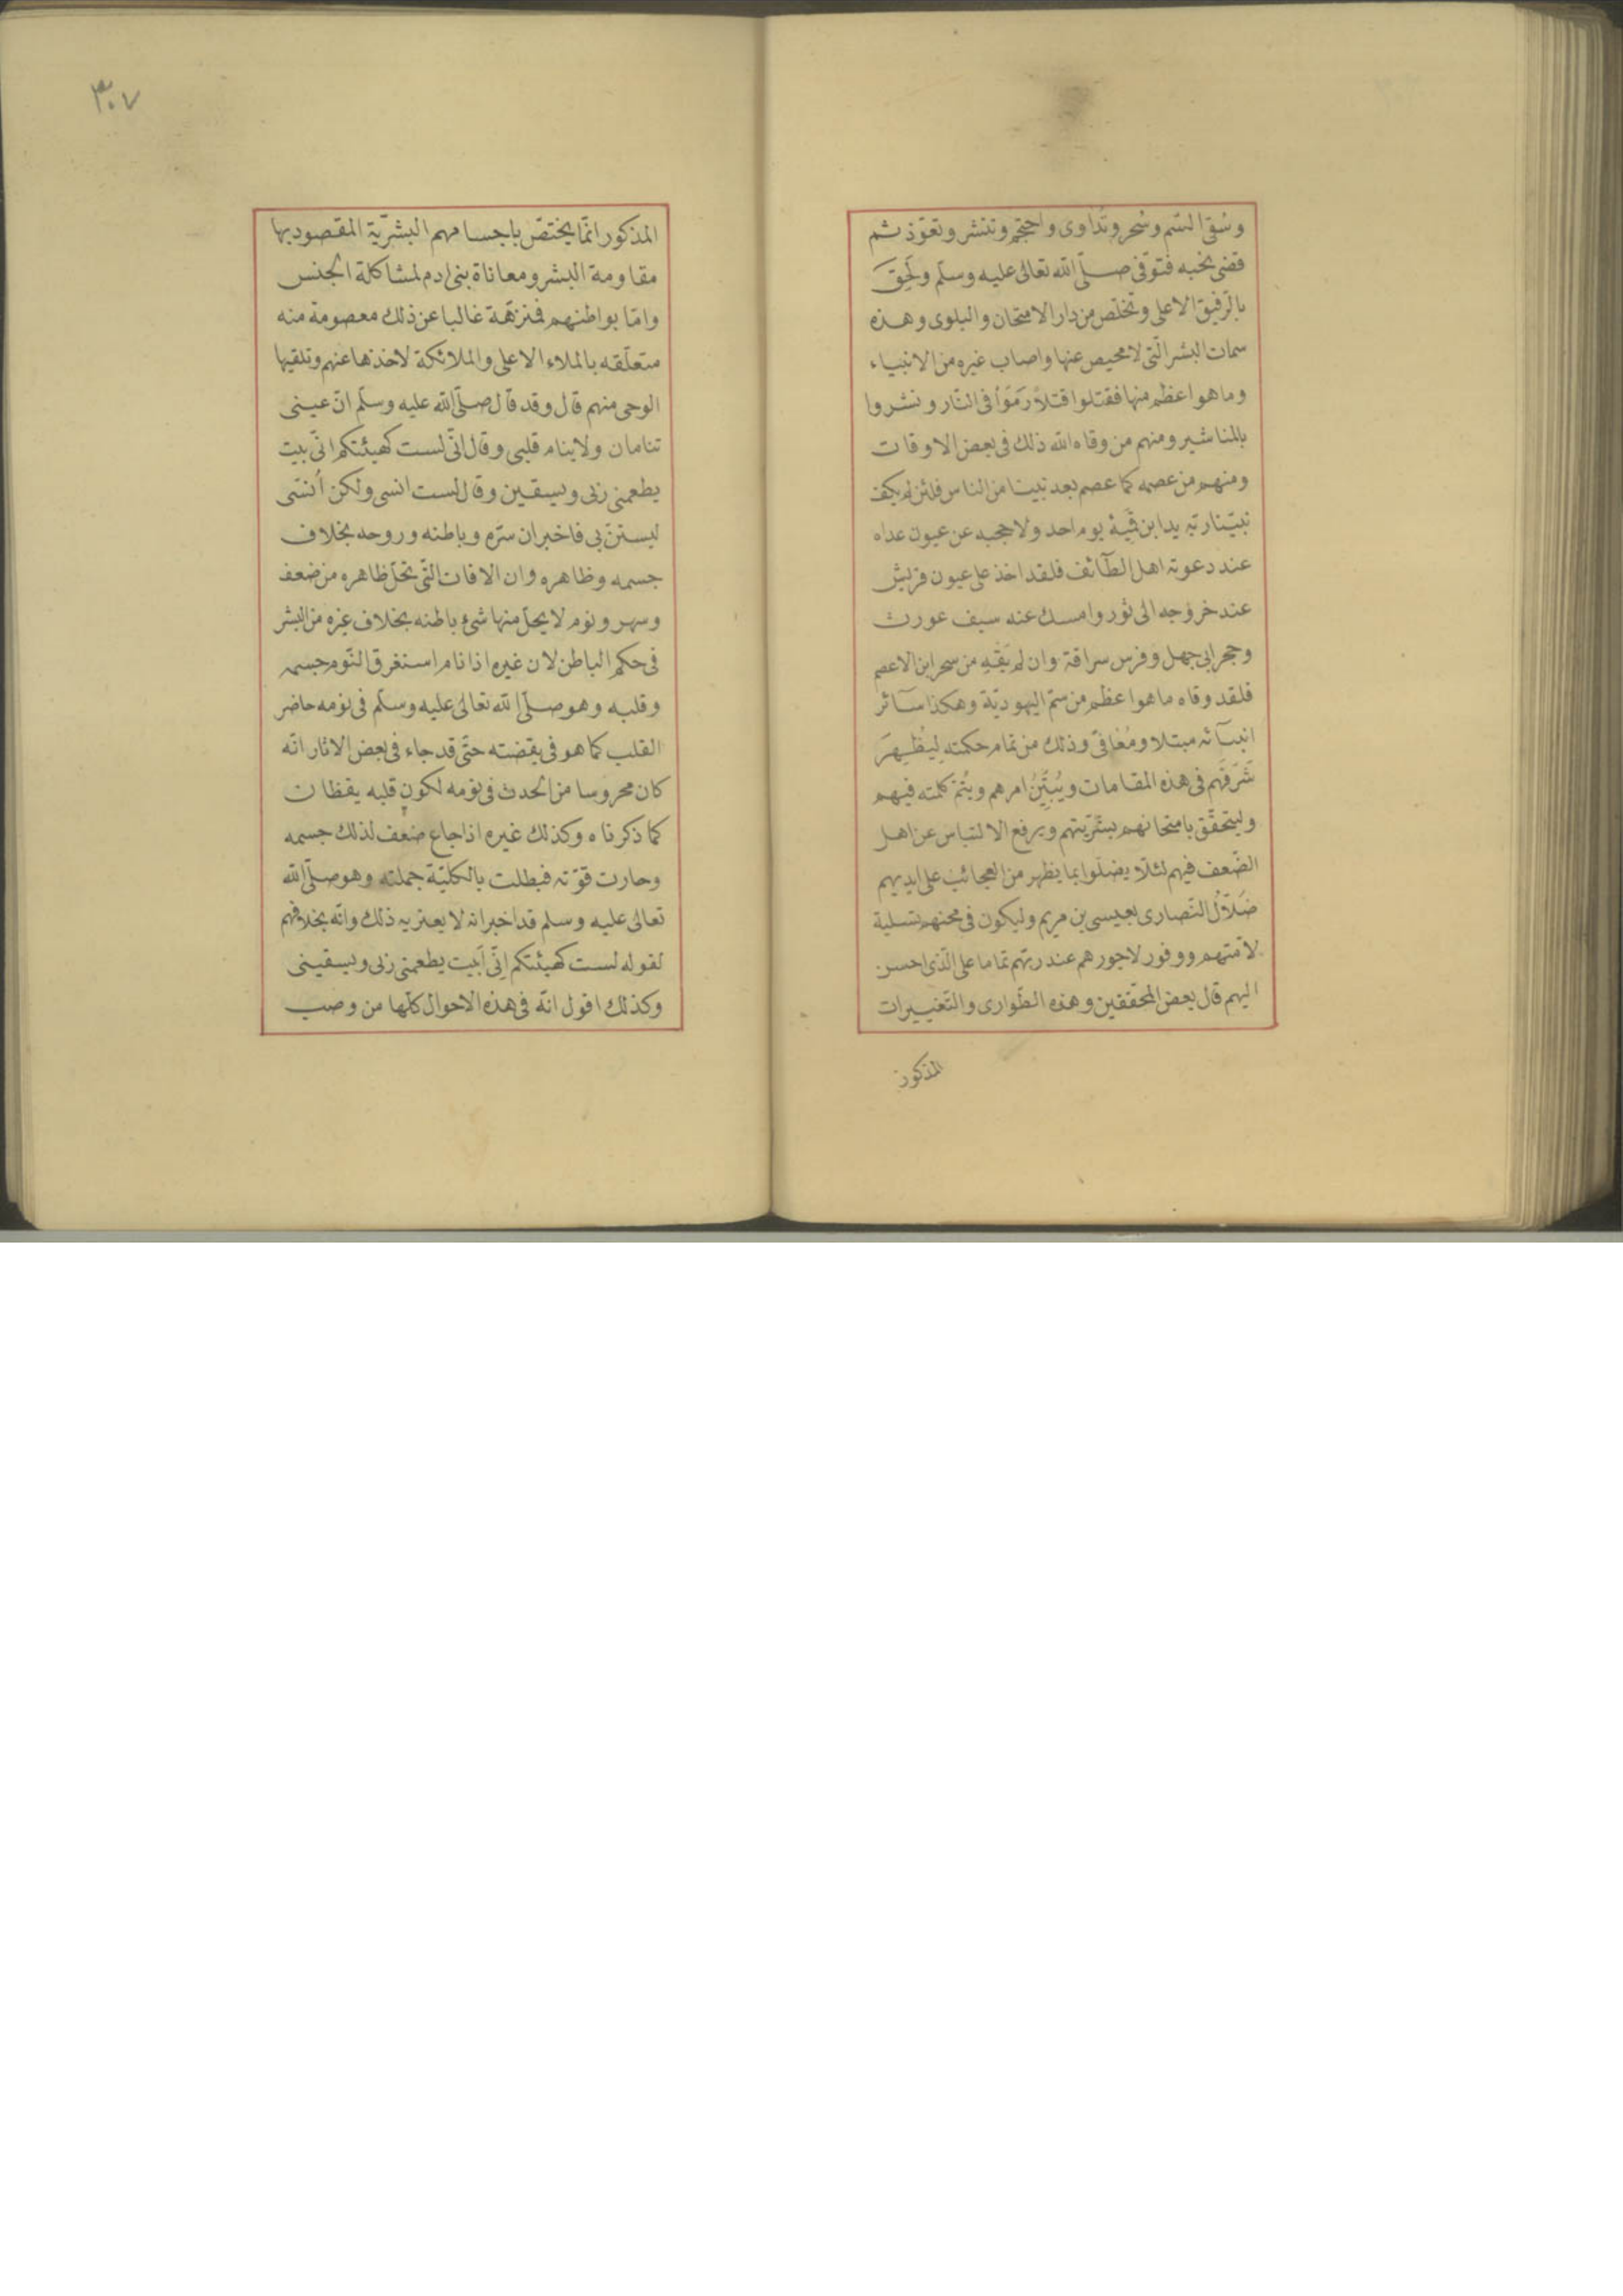 وسُقِىَ السّم وسُحر وتداوى واحتجم وتنشر وتعوّذ ثم
قضى نحبه فتوفى صلّى الله تعالى عليه وسلّم ولَحِقَ
بالرّفيق الاعلى وتخلّص من دار الامتحان والبلوى وهذه
سمات البشر الّتى لا محيص عنها واصاب غيره من الانبياء
وما هو اعظم منها فقتلوا قتلاً رَمَوا فى النّار ونشروا
بالمناشير ومنهم من وقاه الله ذلك فى بعض الاوقات
ومنهم من عصمه كما عصم بعد نبينا من الناس فلئن لم يكف
نبيّنا ربّه يد ابن قمِئة يوم احد ولا حجبه عن عيون عداه
عند دعوته اهل الطّآئف فلقد اخذ على عيون قريش
عند خروجه الى ثور وامسك عنه سيف غورث
وحجر ابى جهل وفرس سراقة وان لم يَقِهِ من سحر ابن الاعصم
فلقد وقاه ما هو اعظم من سمّ اليهوديّة وهكذا سآئر
انبيآئه مبتلا ومُعافىً وذلك من تمام حكمته لِيُظهِرَ
شَرَفَهم فى هذه المقامات ويُبَيِّنُ امرهم ويُتمّ كلمته فيهم
وليتحقّق بامتحانهم بشريّتهم ويرفع الالتباس عن اهل
الضّعف فيهم لئلّا يضلّوا بما يظهر من العجائب على ايديهم
ضَلالُ النّصارى بعيسى بن مريم وليكون فى محنهم تسلية
لامّتهم ووفور لاجورهم عند ربّهم تماما على الّذى احسن
اليهم قال بعض المحقّقين وهذه الطّوارى والتّغييرات
المذكور
٣٠٧
المذكور انّما يختصّ باجسامهم البشريّة المقصود بها
مقاومة البشر ومعاناة بنى ادم لمشاكلة الجنس
وامّا بواطنهم فمنزّهة غالبا عن ذلك معصومة منه
متعلّقه بالملاء الاعلى والملائكة لاخذها عنهم وتلقيها
الوحى منهم قال وقد قال صلّى الله عليه وسلّم انّ عينى
تنامان ولا ينام قلبى وقال انّى لست كهيئتكم انّى بيت
يطعمنى ربّى ويسقين وقال لست انسى ولكن اُنسّى
ليستنّ بى فاخبر ان سرّه وباطنه وروحه بخلاف
جسمه وظاهره وان الافات الّتى تحلّ ظاهره من ضعف
وسهر ونوم لا يحلّ منها شئ باطنه بخلاف غيره من البشر
فى حكم الباطن لان غيره اذا نام استغرق النّوم جسمه
وقلبه وهو صلّى الله تعالى عليه وسلّم فى نومه حاضر
القلب كما هو فى يقضته حتّى قد جاء فى بعض الاثار انّه
كان محروسا من الحدث فى نومه لكون قلبه يقظان
كما ذكرناه وكذلك غيره اذا جاع ضعف لذلك جسمه
وحارت قوّته فبطلت بالكليّة جملته وهو صلّى الله
تعالى عليه وسلم قد اخبر انه لا يعتريه ذلك وانّه بخلافهم
لقوله لست كهيئتكم اِنّى اَبيت يطعمنى ربّى ويسقينى
وكذلك اقول انّه فى هذه الاحوال كلّها من وصب